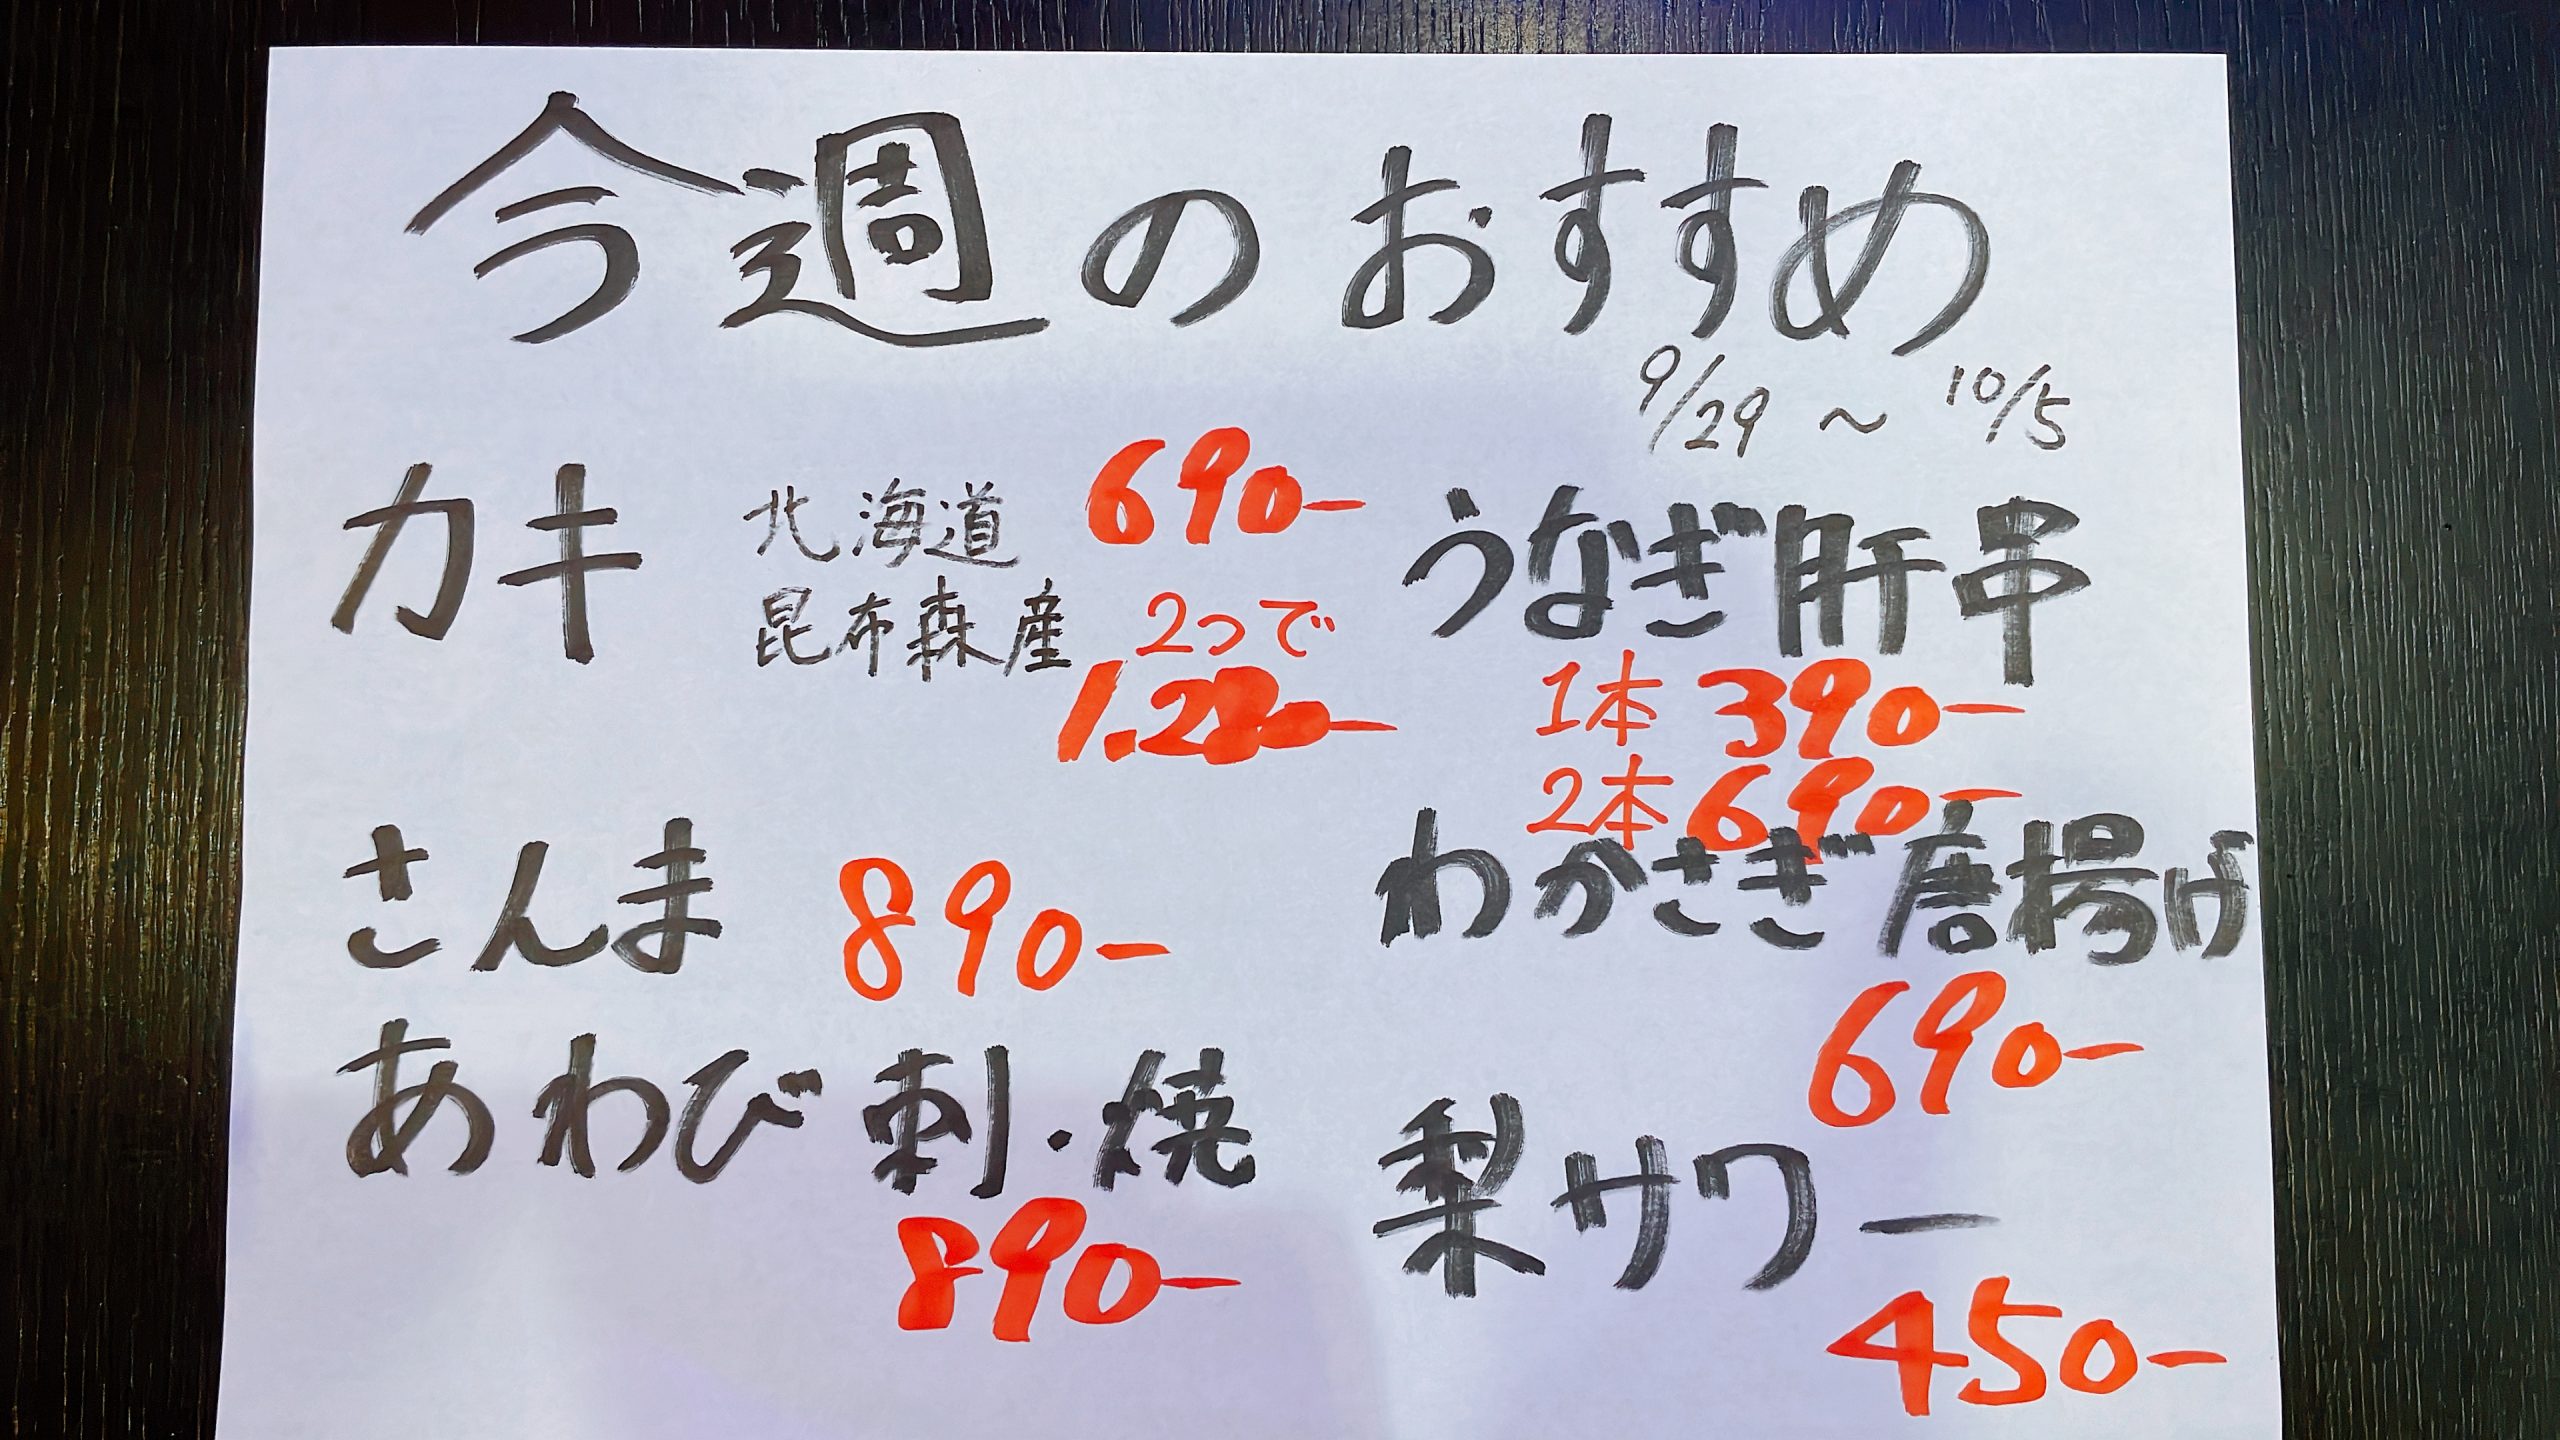 今週のおすすめ
9/29 ～ 10/5
カキ 北海道 690-
昆布森産 2つで
1.280-
さんま 890-
あわび 刺・焼
890-
うなぎ肝串
1本 390-
2本 690-
わかさぎ唐揚げ
690-
梨サワー
450-